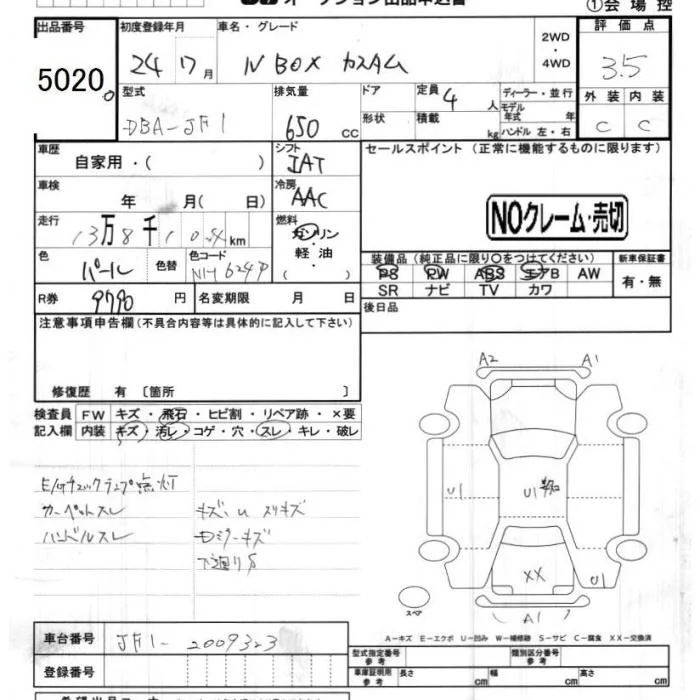 オークション出品申込書
①会場控
出品番号 初度登録年月 車名・グレード 2WD・4WD 評価点
5020 24 7月 N BOX カスタム 3.5
型式 排気量 ドア 定員 4 人 ディーラー・並行 外装 内装
DBA-JF1 650 cc 形状 積載 kg モデル年式 年 C C
ハンドル 左・右
車歴 シフト セールスポイント (正常に機能するものに限ります)
自家用・( ) IAT
車検 年 月( 日) 冷房 AAC
NOクレーム・売切
走行 13万8千 km 燃料 ガソリン・軽油 ( )
色 パール 色替 色コード NH624P
装備品(純正品に限り○をつけてください) 新車保証書
PS PW ABS エアB AW 有・無
SR ナビ TV カワ
R券 9790 円 名変期限 月 日 後日品
注意事項申告欄(不具合内容等は具体的に記入して下さい)
修復歴 有 〔箇所 〕
検査員 FW キズ・飛石・ヒビ割・リペア跡・×要
記入欄 内装 キズ・汚レ・コゲ・穴・スレ・キレ・破レ
E/Gチェックランプ点灯
カーペットスレ キズ、U スリキズ
ハンドルスレ Dミラーキズ
下回りS
A2 A1
U1 U1
XX U1
A1
スペア
A-キズ E-エクボ U-凹み W-補修跡 S-サビ C-腐食 XX-交換済
車台番号 JF1-2009323
型式指定番号 参考 類別区分番号 参考
登録番号
車庫証明用 参考 長さ cm 幅 cm 高さ cm